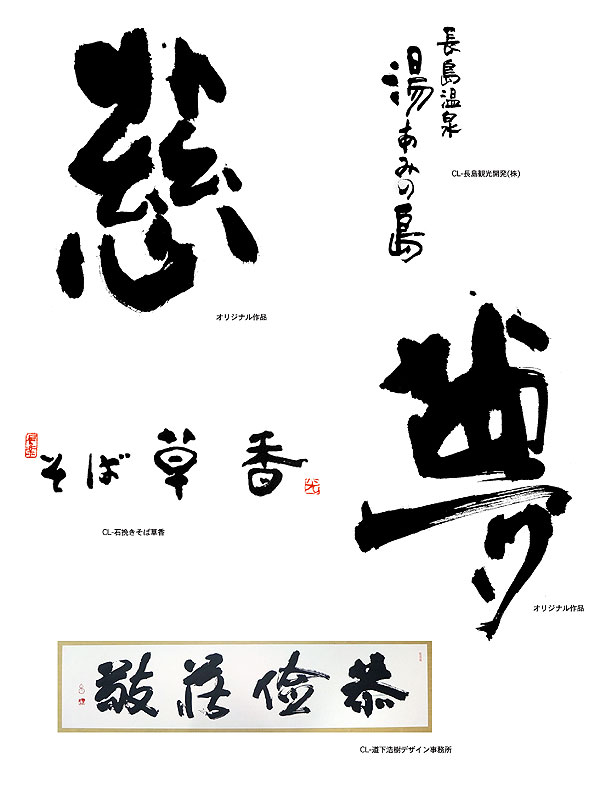 慈
オリジナル作品
長島温泉
湯あみの島
CL-長島観光開発(株)
夢
オリジナル作品
そば草香
CL-石挽きそば草香
恭倹荘敬
CL-道下浩樹デザイン事務所